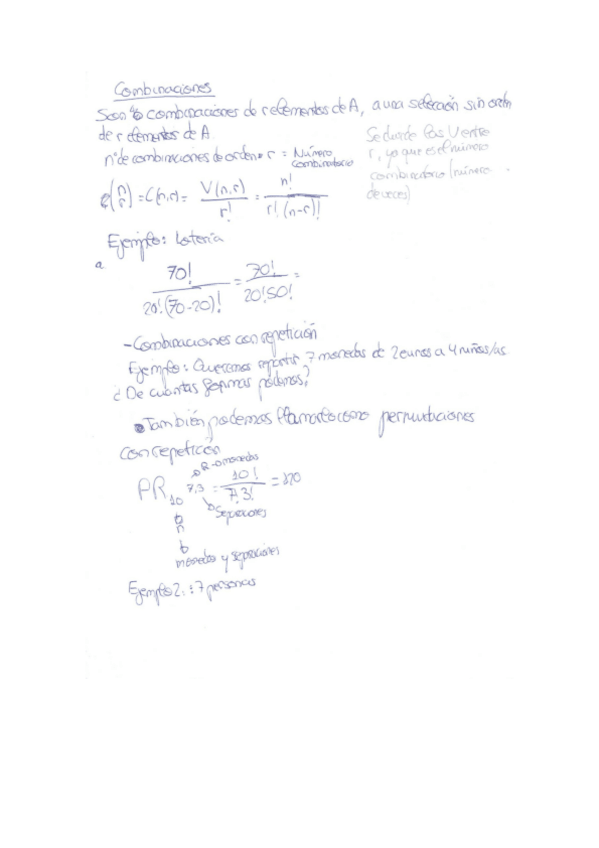 Combinaciones
Son combinaciones de r elementos de A, a una selección sin orden
de r elementos de A
Se divide las V entre
r, ya que es el número
combinatorio (número
de veces)
nº de combinaciones de orden r = Número
combinatorio
(n r) = C(n,r) = V(n,r) / r! = n! / r!(n-r)!
Ejemplo: Lotería
a
70! / 20!(70-20)! = 70! / 20!50! =
- Combinaciones con repetición
Ejemplo: Queremos repartir 7 monedas de 2 euros a 4 niños/as
¿De cuántas formas podemos?
También podemos llamarlo como permutaciones
con repetición
monedas
PR 10 7,3 = 10! / 7!3! = 120
Separaciones
n
monedas y separaciones
Ejemplo 2: 7 personas